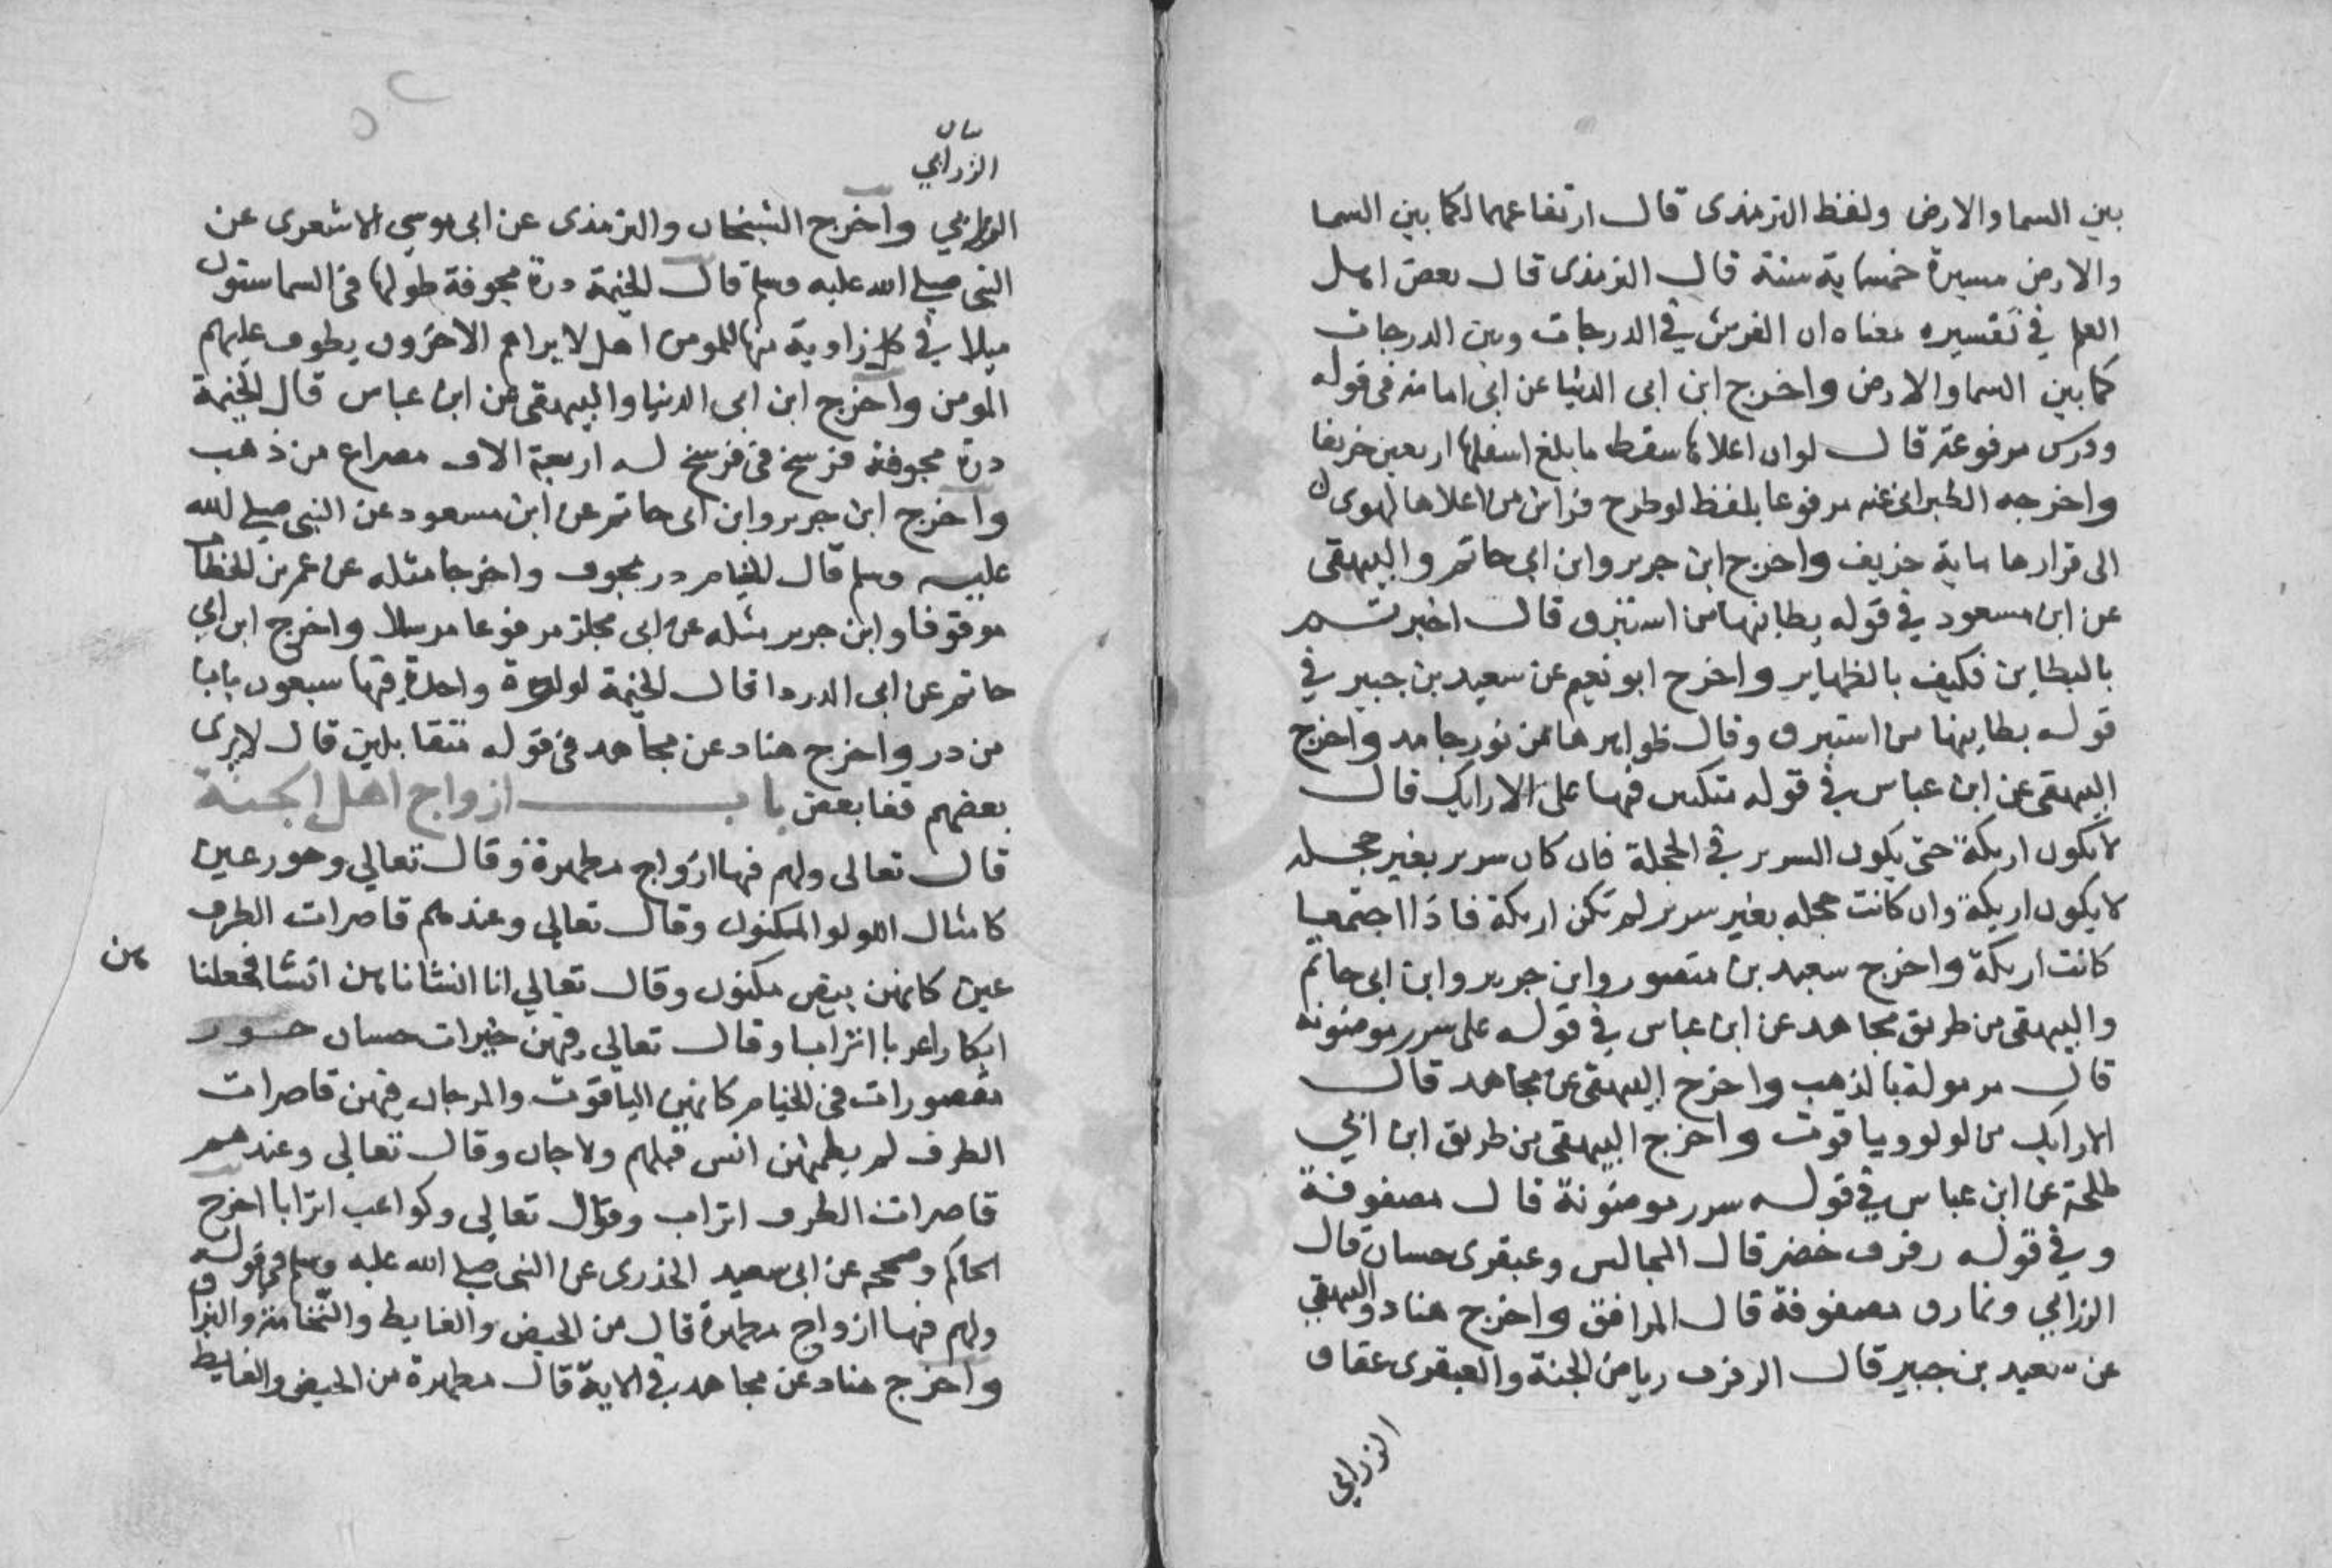 بين السما والارض ولفظ الترمذى قال ارتفاعهما لكما بين السما
والارض مسيرة خمسماية سنة قال الترمذى قال بعض اهل
العلم في تفسيره معناه ان الفرش في الدرجات وبين الدرجات
كما بين السما والارض واخرج ابن ابى الدنيا عن ابى امامة فى قوله
وفرس مرفوعة قال لو ان اعلاها سقط ما بلغ اسفلها اربعين خريفا
واخرجه الطبرانى عنه مرفوعا بلفظ لو طرح فراش من اعلاها لهوى
الى قرارها ماية خريف واخرج ابن جرير وابن ابى حاتم والبيهقى
عن ابن مسعود في قوله بطاينها من استبرق قال اخبرتم
بالبطاين فكيف بالظهاير واخرج ابو نعيم عن سعيد بن جبير في
قوله بطاينها من استبرق وقال ظواهرها من نور جامد واخرج
البيهقى عن ابن عباس في قوله متكين فيها على الارايك قال
لا يكون اريكة حتى يكون السرير في الحجلة فان كان سرير بغير حجله
لا يكون اريكة وان كانت حجله بغير سرير لم تكن اريكة فاذا اجتمعا
كانت اريكة واخرج سعيد بن منصور وابن جرير وابن ابى حاتم
والبيهقى من طريق مجاهد عن ابن عباس في قوله على سرر موضونه
قال مرمولة بالذهب واخرج البيهقى عن مجاهد قال
الارايك من لولو وياقوت واخرج البيهقى من طريق ابن ابي
طلحة عن ابن عباس في قوله سرر موضونة قال مصفوفة
وفي قوله رفرف خضر قال المجالس وعبقرى حسان قال
الزرابي ونمارق مصفوفة قال المرافق واخرج هناد والبيهقي
عن سعيد بن جبير قال الرفرف رياض الجنة والعبقرى عقاق
الزرابي
بيان
الزرابي
الزرابي واخرج الشيخان والترمذى عن ابى موسي الاشعرى عن
النبى صلى الله عليه وسلم قال الخيمة درة مجوفة طولها فى السما ستون
ميلا في كل زاوية منها للمومن اهل لا يراهم الاخرون يطوف عليهم
المومن واخرج ابن ابى الدنيا والبيهقى عن ابن عباس قال الخيمة
درة مجوفة فرسخ فى فرسخ له اربعة الاف مصراع من ذهب
واخرج ابن جرير وابن ابى حاتم عن ابن مسعود عن النبى صلى الله
عليه وسلم قال الخيام در مجوف واخرجا مثله عن عمر بن الخطاب
موقوفا وابن جرير مثله عن ابى مجلز مرفوعا مرسلا واخرج ابن ابي
حاتم عن ابى الدردا قال الخيمة لولوة واحدة فيها سبعون بابا
من در واخرج هناد عن مجاهد فى قوله متقابلين قال لا يرى
بعضهم قفا بعض باب ازواج اهل الجنة
قال تعالى ولهم فيها ازواج مطهرة وقال تعالي وحور عين
كامثال اللولو المكنون وقال تعالي وعندهم قاصرات الطرف
عين كانهن بيض مكنون وقال تعالي انا انشاناهن انشا فجعلنا
هن
ابكارا عربا اترابا وقال تعالي فيهن خيرات حسان حور
مقصورات فى الخيام كانهن الياقوت والمرجان فيهن قاصرات
الطرف لم يطمثهن انس قبلهم ولا جان وقال تعالي وعندهم
قاصرات الطرف اتراب وقال تعالي وكواعب اترابا اخرج
الحاكم وصححه عن ابى سعيد الخدرى عن النبى صلى الله عليه وسلم فى قوله
ولهم فيها ازواج مطهرة قال من الحيض والغايط والنخامة والبزاق
واخرج هناد عن مجاهد في الاية قال مطهرة من الحيض والغايط